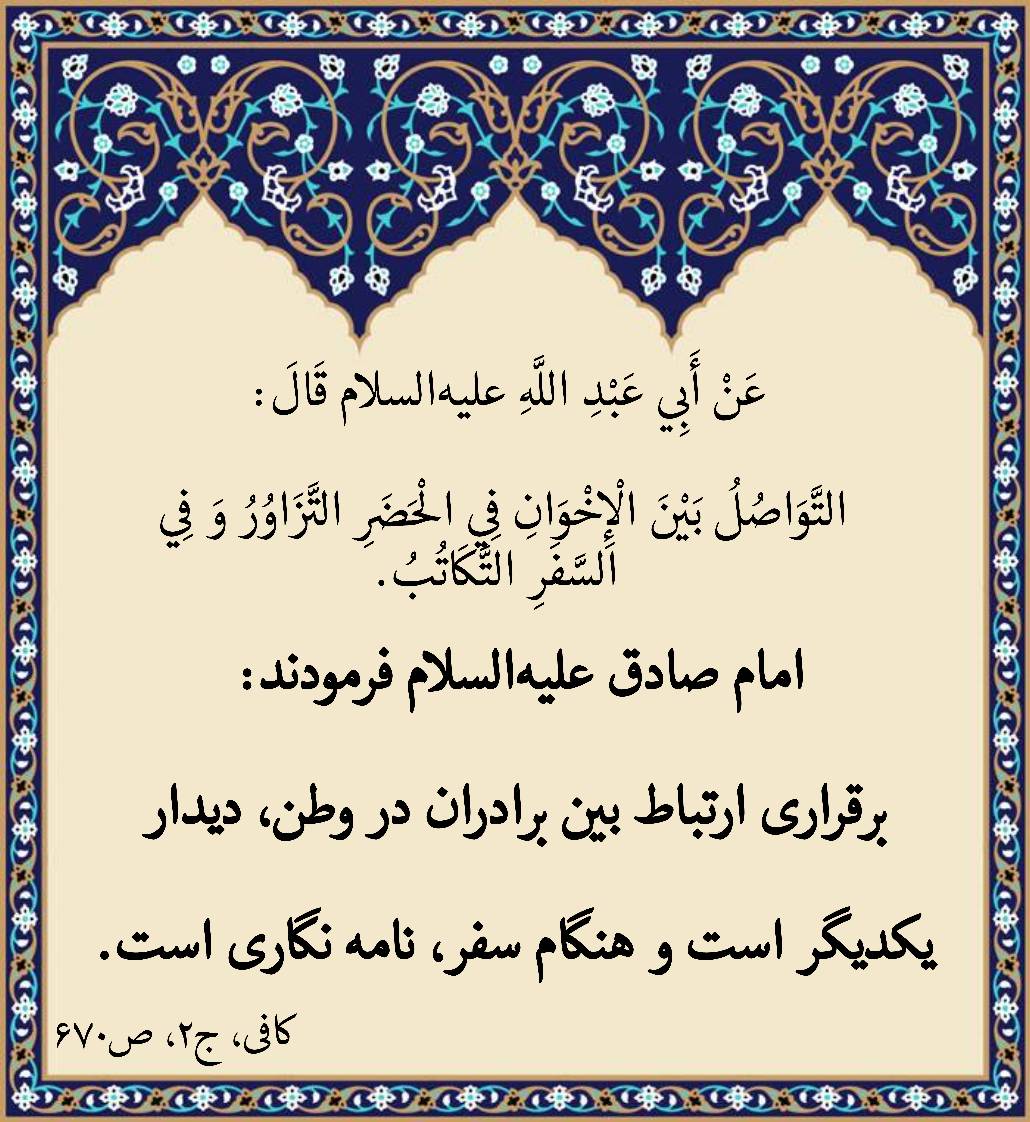 عَنْ أَبِي عَبْدِ اللَّهِ علیه‌السلام قَالَ:
التَّوَاصُلُ بَيْنَ الْإِخْوَانِ فِي الْحَضَرِ التَّزَاوُرُ وَ فِي
السَّفَرِ التَّكَاتُبُ.
امام صادق علیه‌السلام فرمودند:
برقراری ارتباط بین برادران در وطن، دیدار
یکدیگر است و هنگام سفر، نامه نگاری است.
کافی، ج۲، ص۶۷۰